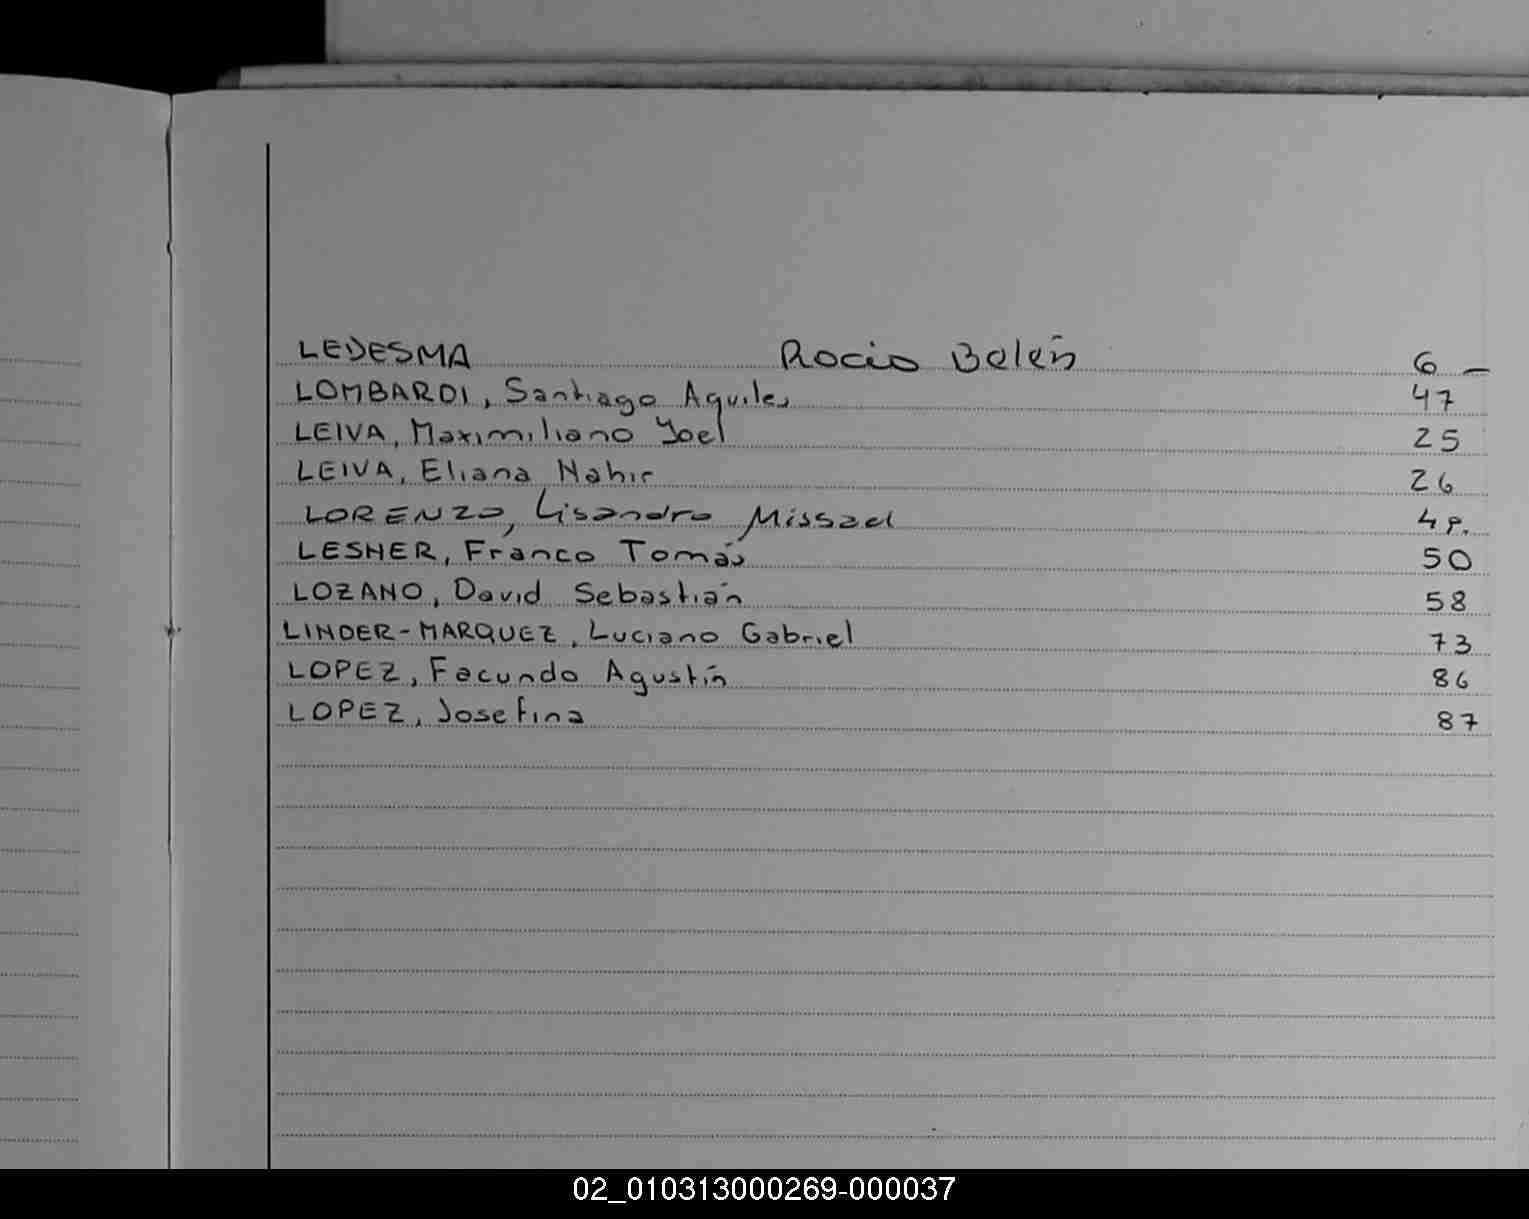 LEDESMA Rocio Belén 6 —
LOMBARDI, Santiago Aquiles 47
LEIVA, Maximiliano Yoel 25
LEIVA, Eliana Nahir 26
LORENZO, Lisandro Missael 49.
LESHER, Franco Tomás 50
LOZANO, David Sebastián 58
LINDER-MARQUEZ, Luciano Gabriel 73
LOPEZ, Facundo Agustín 86
LOPEZ, Josefina 87
02_010313000269-000037